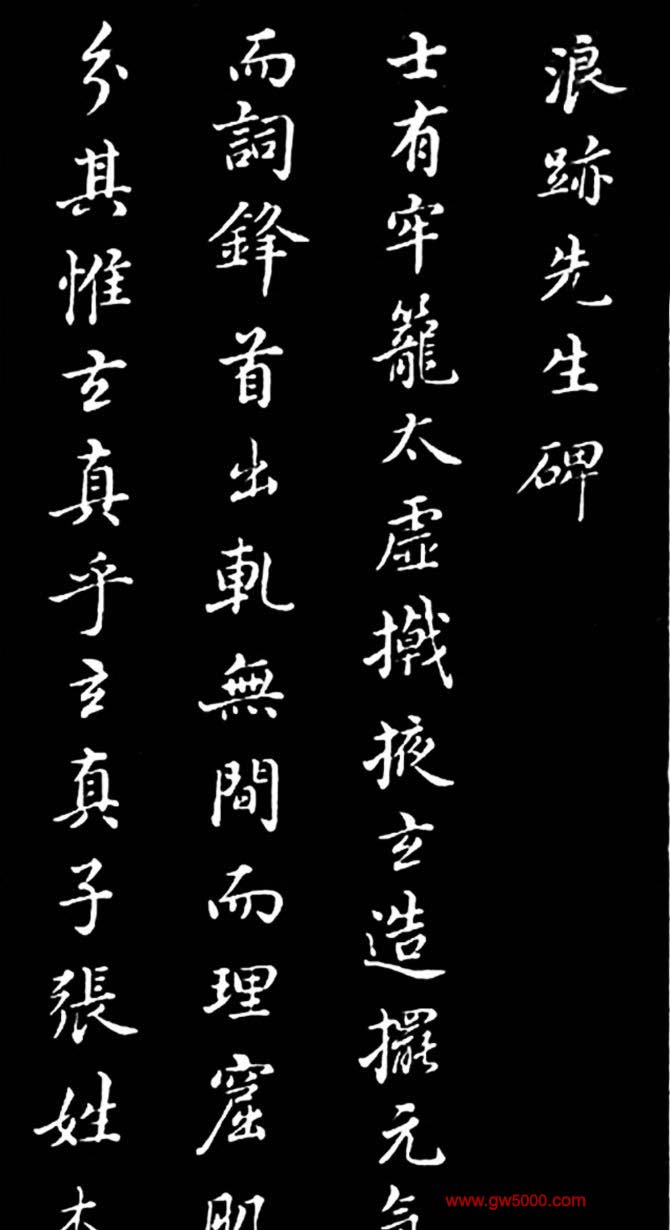 浪跡先生碑
士有牢籠太虛撠掖玄造擺元氣
而詞鋒首出軋無間而理窟肌
分其惟玄真乎玄真子張姓本
www.gw5000.com